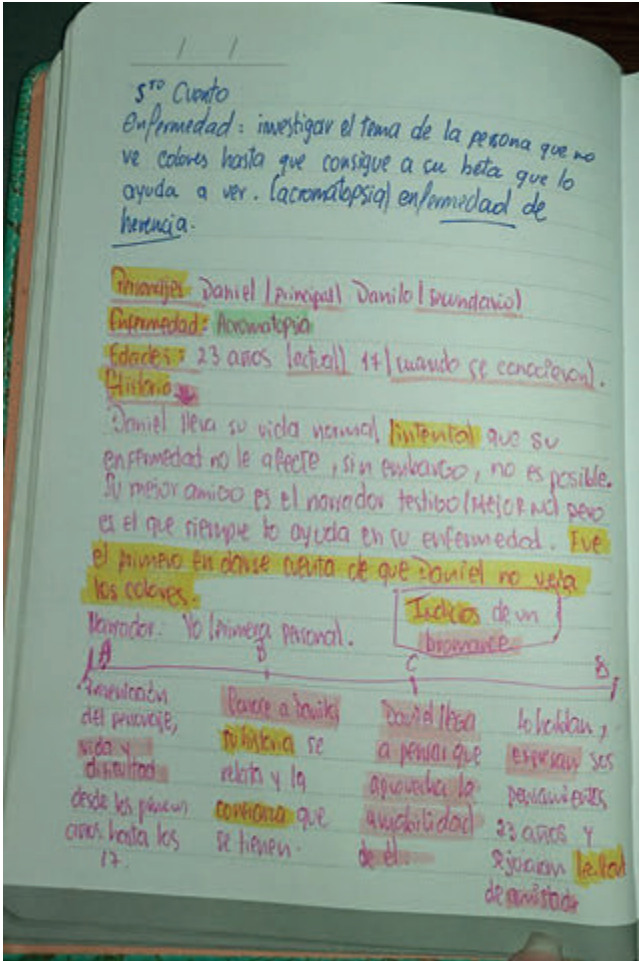 / /
5to Cuento
Enfermedad: investigar el tema de la persona que no
ve colores hasta que consigue a su beta que lo
ayuda a ver. (acromatopsia) enfermedad de
herencia.
Personajes: Daniel (principal) Danilo (secundario)
Enfermedad: Acromatopsia
Edades: 23 años (actual) 17 (cuando se conocieron).
Historia
Daniel lleva su vida normal (intenta) que su
enfermedad no le afecte, sin embargo, no es posible.
Su mejor amigo es el narrador testigo (MEJOR NO) pero
es el que siempre lo ayuda en su enfermedad. Fue
el primero en darse cuenta de que Daniel no veía
los colores.
Indicios de un
bromance.
Narrador: Yo (primera persona).
A B C
del personaje,
vida y
dificultad
desde los primeros
años hasta los
17.
Conoce a Danilo
su historia se
relata y la
confianza que
se tienen.
Daniel llega
a pensar que
aprovecha la
amabilidad
de él
Lo hablan,
expresan sus
pensamientos
23 años y
de amistad